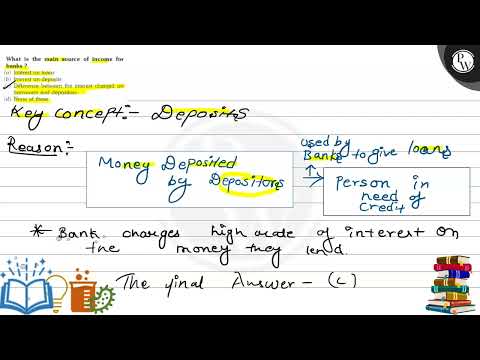 What is the main source of income for
banks ?
(a) Interest on loans
(b) Interest on deposits
Difference between the interest charged on
borrowers and depositors
(d) None of these
Key concept:- Deposits
Reason:-
Money Deposited
by Depositors
used by
Banks to give loans
Person in
need of
Credit
* Bank charges high rate of interest on
the money they lend.
The final Answer - (c)
PW